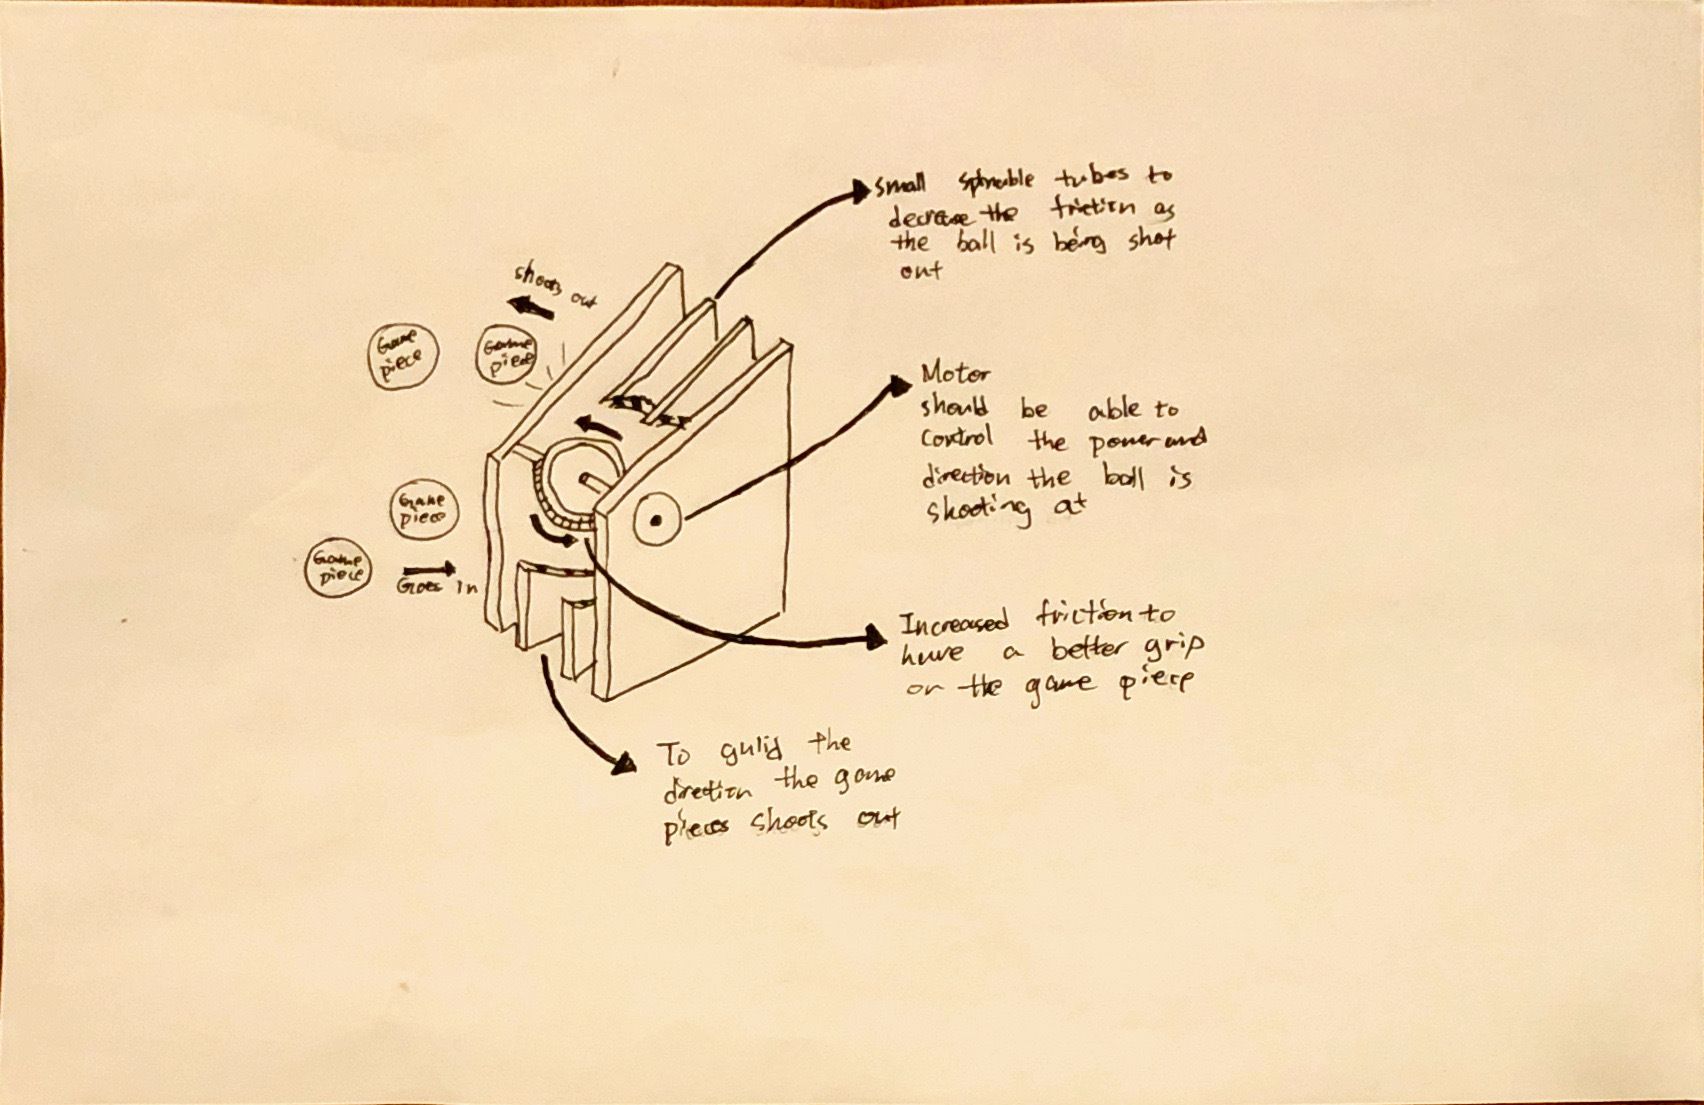 Small spinable tubes to
decrease the friction as
the ball is being shot
out
shoots out
Game
piece
Game
piece
Motor
should be able to
control the power and
direction the ball is
shooting at
Game
piece
Game
piece
Goes In
Increased friction to
have a better grip
on the game piece
To gulid the
direction the game
pieces shoots out